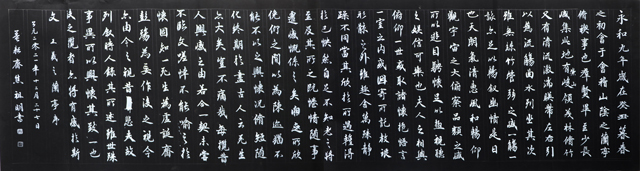 永和九年歲在癸丑暮春
之初會于會稽山陰之蘭亭
修禊事也群賢畢至少長
咸集此地有崇山峻領茂林脩竹
又有清流激湍映帶左右引
以為流觴曲水列坐其次
雖無絲竹管弦之盛一觴一
詠亦足以暢敘幽情是日
也天朗氣清惠風和暢仰
觀宇宙之大俯察品類之盛
所以遊目騁懷足以極視聽
之娛信可樂也夫人之相與
俯仰一世或取諸懷抱悟言
一室之內或因寄所託放浪
形骸之外雖趣舍萬殊靜
躁不同當其欣於所遇暫得
於己快然自足不知老之將
至及其所之既惓情隨事
遷感慨係之矣向之所欣
俛仰之間以為陳跡猶不
能不以之興懷況脩短隨
化終期於盡古人云死生
亦大矣豈不痛哉每攬昔
人興感之由若合一契未嘗
不臨文嗟悼不能喻之於
懷固知一死生為虛誕齊
彭殤為妄作後之視今
亦由今之視昔悲夫故
列敘時人錄其所述雖世殊
事異所以興懷其致一也
後之覽者亦將有感於斯
文 王羲之蘭亭序
祖明書